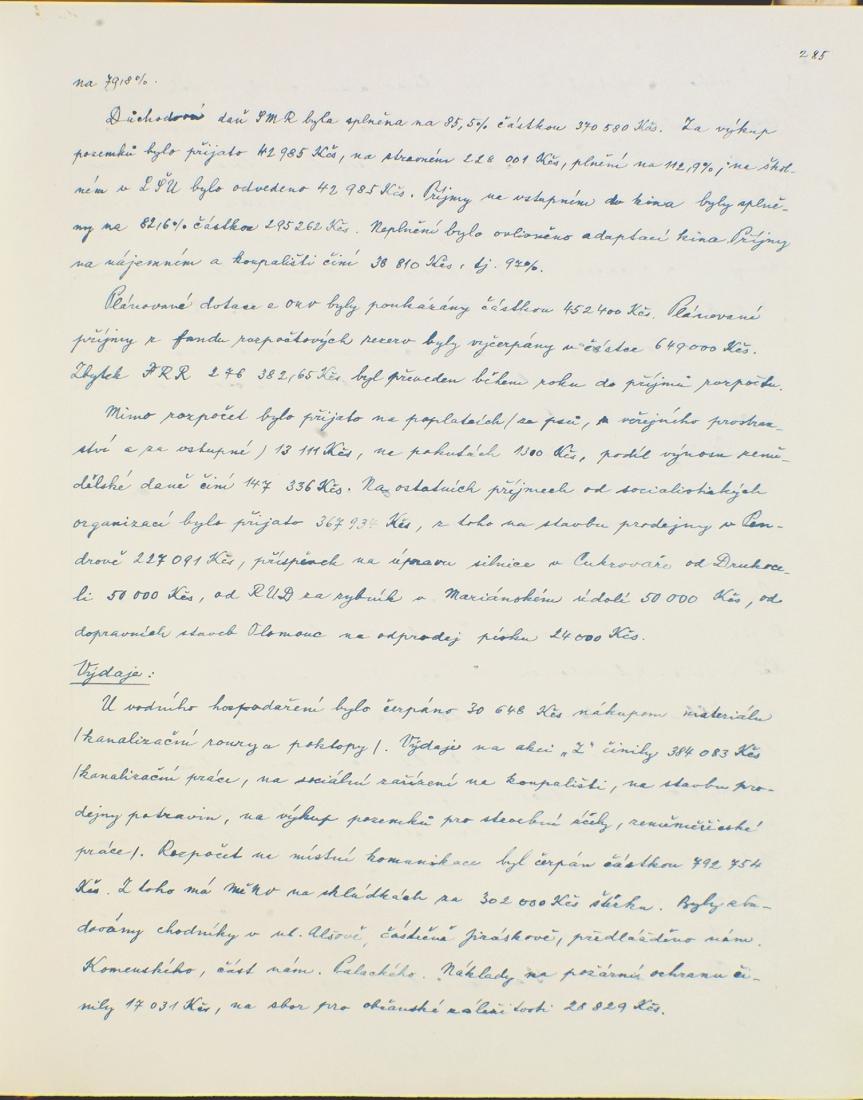 285
na 79,8%.
Důchodová daň SMR byla splněna na 85,5% částkou 370 580 Kčs. Za výkup
pozemků bylo přijato 42 985 Kčs, na stravném 228 001 Kčs, plnění na 112,9%, na škol-
ném v LŠU bylo odvedeno 42 985 Kčs. Příjmy ze vstupního do kina byly splně-
ny na 82,6% částkou 295 262 Kčs. Neplnění bylo ovlivněno adaptací kina. Příjmy
na nájemném a koupališti činí 38 810 Kčs, tj. 97%.
Plánované dotace z ONV byly poukázány částkou 452 400 Kčs. Plánované
příjmy z fondu rozpočtových rezerv byly vyčerpány v částce 649 000 Kčs.
Zbytek FRR 276 382,65 Kčs byl převeden během roku do příjmů rozpočtu.
Mimo rozpočet bylo přijato na poplatcích /ze psů, z veřejného prostran-
ství a za vstupné/ 13 111 Kčs, na pokutách 1300 Kčs, podíl výnosu země-
dělské daně činí 147 336 Kčs. Na ostatních příjmech od socialistických
organizací bylo přijato Kčs, z toho na stavbu prodejny v Pen-
drově 227 091 Kčs, příspěvek na úpravu silnice v Cukrovaře od Drukoc-
li 50 000 Kčs, od RUD za rybník v Mariánském údolí 50 000 Kčs, od
dopravních staveb Olomouc na odprodej písku 24 000 Kčs.
Výdaje:
U vodního hospodaření bylo čerpáno 30 648 Kčs nákupem materiálu
/kanalizační roury a poklopy/. Výdaje na akci „Z“ činily 384 083 Kčs
/kanalizační práce, na sociální zařízení na koupališti, na stavbu pro-
dejny potravin, na výkup pozemků pro stavební účely, zeměměřičské
práce/. Rozpočet na místní komunikace byl čerpán částkou 792 754
Kčs. Z toho má MěNV na skládkách za 302 000 Kčs štěrku. Byly vybu-
dovány chodníky v ul. Alšově, částečně Jiráskově, předlážděno nám.
Komenského, část nám. Palackého. Náklady na požární ochranu či-
nily 17 031 Kčs, na sbor pro občanské záležitosti 28 829 Kčs.